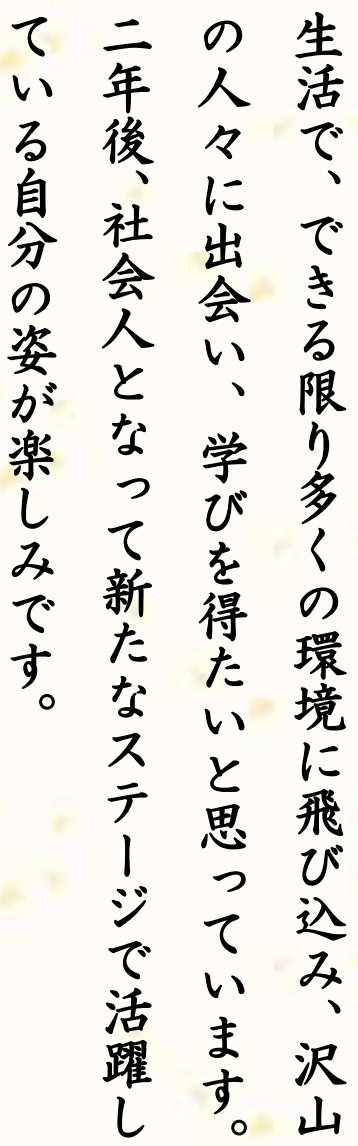 生活で、できる限り多くの環境に飛び込み、沢山
の人々に出会い、学びを得たいと思っています。
二年後、社会人となって新たなステージで活躍し
ている自分の姿が楽しみです。